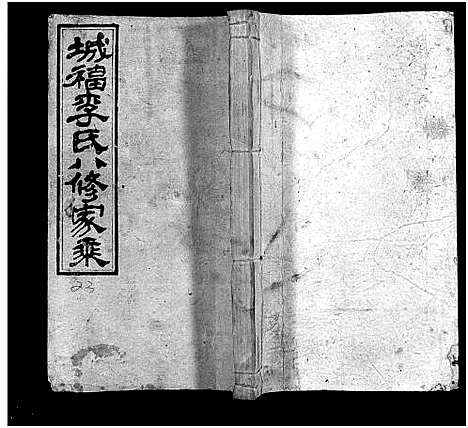 城福李氏八修家乘
23